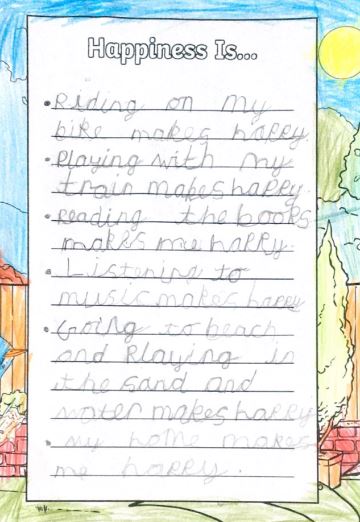 Happiness Is...
• Riding on my
bike makes happy.
• Playing with my
train makes happy.
• Reading the books
makes me happy.
• Listening to
music makes happy
• Going to beach
and Playing in
the sand and
water makes happy
• my home makes
me happy.